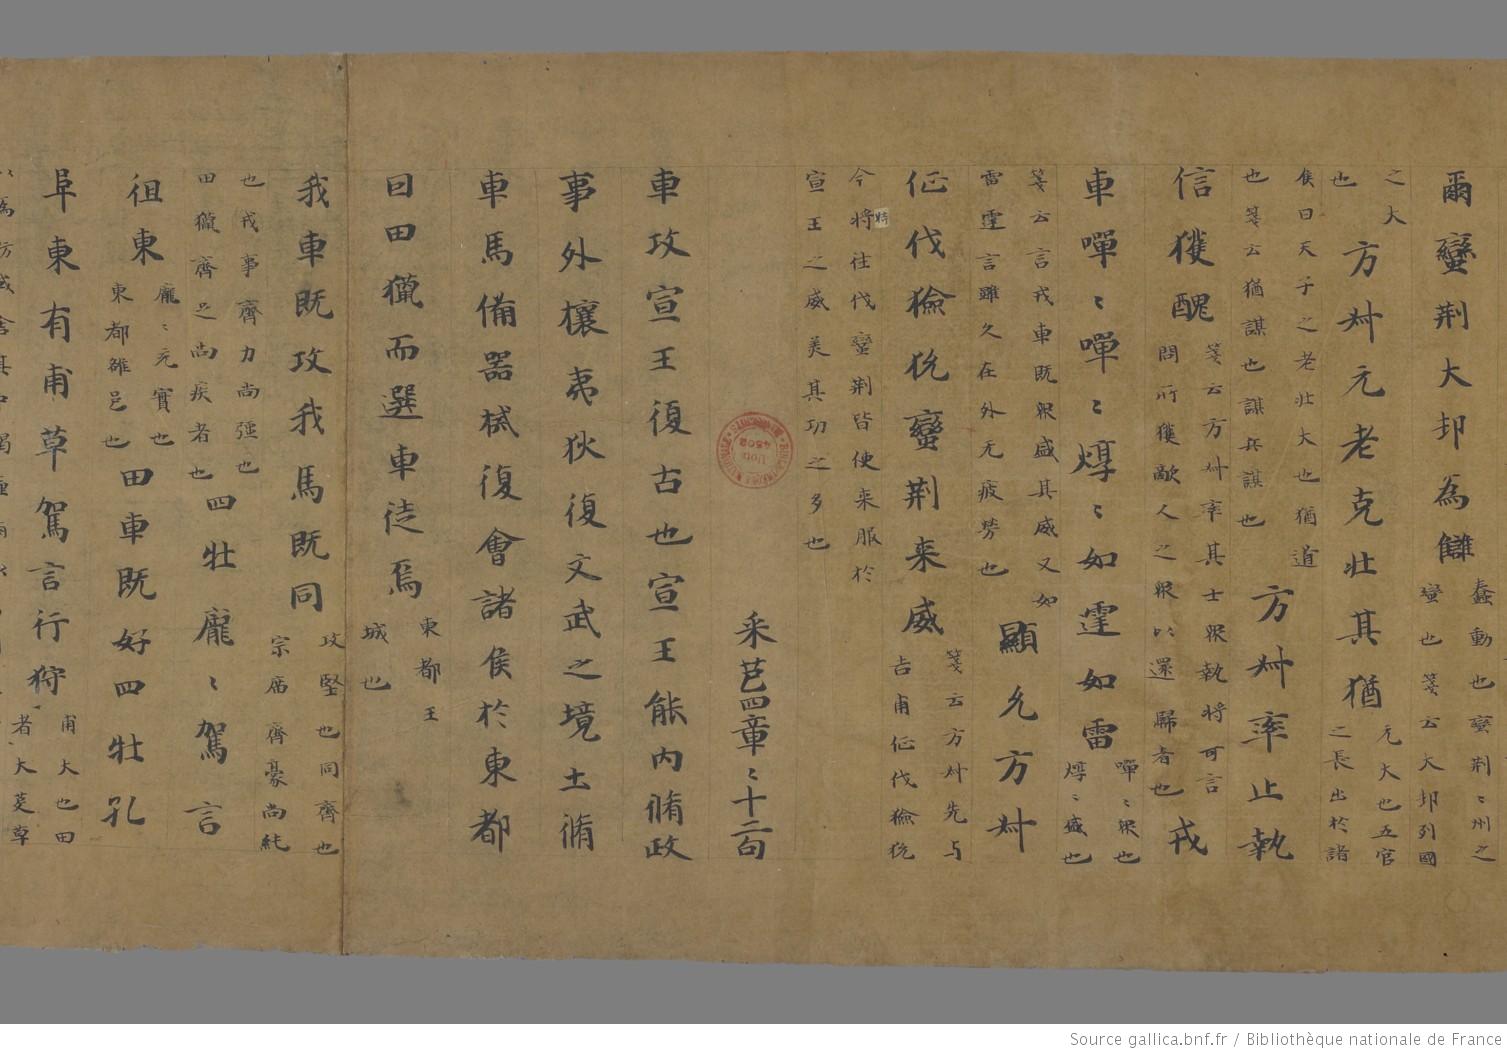 爾蠻荆大邦為讎蠢動也蠻荆〻州之
蠻也箋云大邦列國
之大
也方叔元老克壯其猶元大也五官
之長出於諸
侯曰天子之老壯大也猶道
也箋云猶謀也謀兵謀也方叔率止執
信獲醜箋云方叔率其士衆執將可言
問所獲敵人之衆以還歸者也戎
車嘽〻嘽〻焞〻如霆如雷嘽〻衆也
焞〻盛也
箋云言戎車既衆盛其威又如
雷霆言雖久在外无疲勞也顯允方叔
征伐獫狁蠻荆来威箋云方叔先与
吉甫征伐獫狁
今將往伐蠻荆皆使来服於
特
宣王之威美其功之多也
采芑四章〻十二句
車攻宣王復古也宣王能内脩政
事外攘夷狄復文武之境土脩
車馬備器械復會諸侯於東都
曰田獵而選車徒焉東都王
城也
我車既攻我馬既同攻堅也同齊也
宗庿齊豪尚純
也戎事齊力尚强也
田獵齊足尚疾者也四牡龐〻駕言
徂東龐〻充實也
東都雒邑也田車既好四牡孔
阜東有甫草駕言行狩甫大也田
者大芟草
Source gallica.bnf.fr / Bibliothèque nationale de France